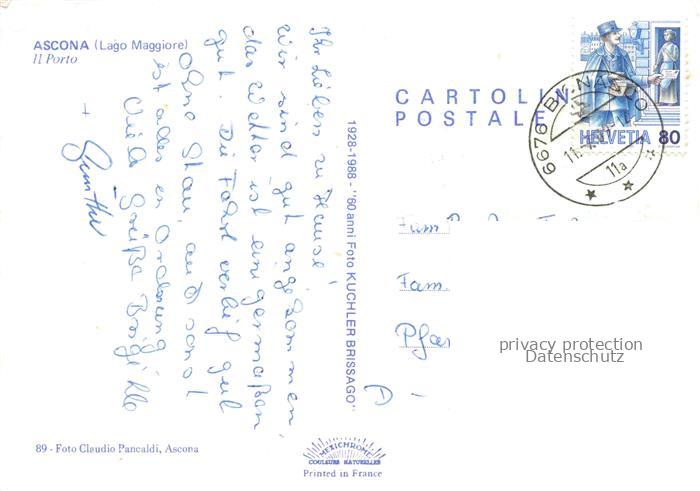 ASCONA (Lago Maggiore)
Il Porto
Ihr Lieben zu Hause!
Wir sind gut angekommen
das Wetter ist einigermaßen
gut. Die Fahrt verlief gut
ohne Stau, auch sonst
ist alles in Ordnung
Viele Grüße Brigitte
+ Günther
1928-1988 - "60 anni Foto KUCHLER BRISSAGO"
CARTOLIN
POSTALE
HELVETIA 80
6676 BIGNASCO
11a
Fam.
Fam.
privacy protection
Datenschutz
89 - Foto Claudio Pancaldi, Ascona
MEXICHROME
COULEURS NATURELLES
Printed in France